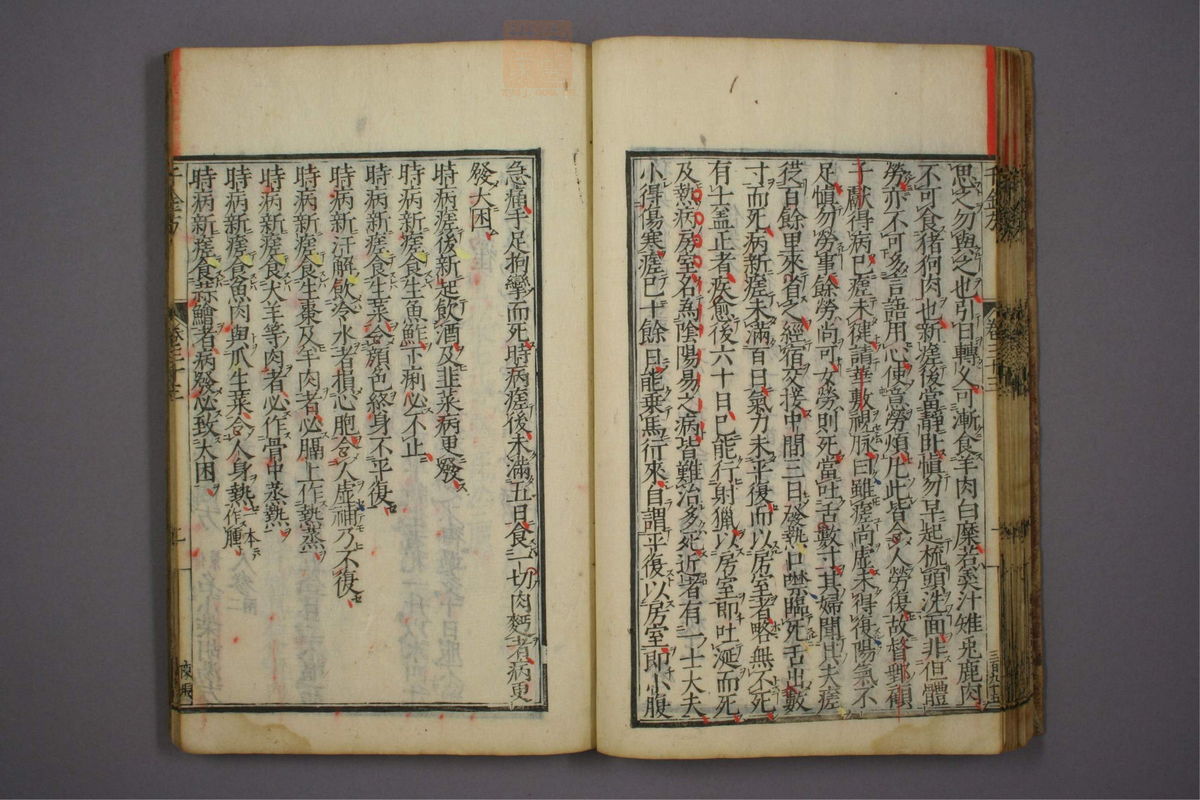 思之勿與之也引日轉久可漸食羊肉白糜若羹汁雉兎鹿肉
不可食猪狗肉也新瘥後當靜臥慎勿早起梳頭洗面非但體
勞亦不可多言語用心使意勞煩凡此皆令人勞復故督郵顧
子獻得病已瘥未健請華敷視脉曰雖瘥尚虛未得復陽氣不
足慎勿勞事餘勞尚可女勞則死當吐舌數寸其婦聞其夫瘥
從百餘里來省之經宿交接中間三日發熱口噤臨死舌出數
寸而死病新瘥未滿百日氣力未平復而以房室者略無不死
有士蓋正者疾愈後六十日已能行射獵以房室即吐涎而死
及熱病房室名爲陰陽易之病皆難治多死近者有一士大夫
小得傷寒瘥已十餘日能乗馬行來自謂平復以房室即小腹
急痛手足拘攣而死時病瘥後未滿五日食一切肉麪者病更
發大困
時病瘥後新起飲酒及韭菜病更發
時病新瘥食生魚鮓下痢必不止
時病新瘥食生菜令顔色終身不平復
時病新汗解飲冷水者損心胞令人虛補乃不復
時病新瘥食生棗及羊肉者必膈上作熱蒸
時病新瘥食犬羊等肉者必作骨中蒸熱
時病新瘥食魚肉與瓜生菜令人身熱
時病新瘥食蒜鱠者病發必致大困
千金方